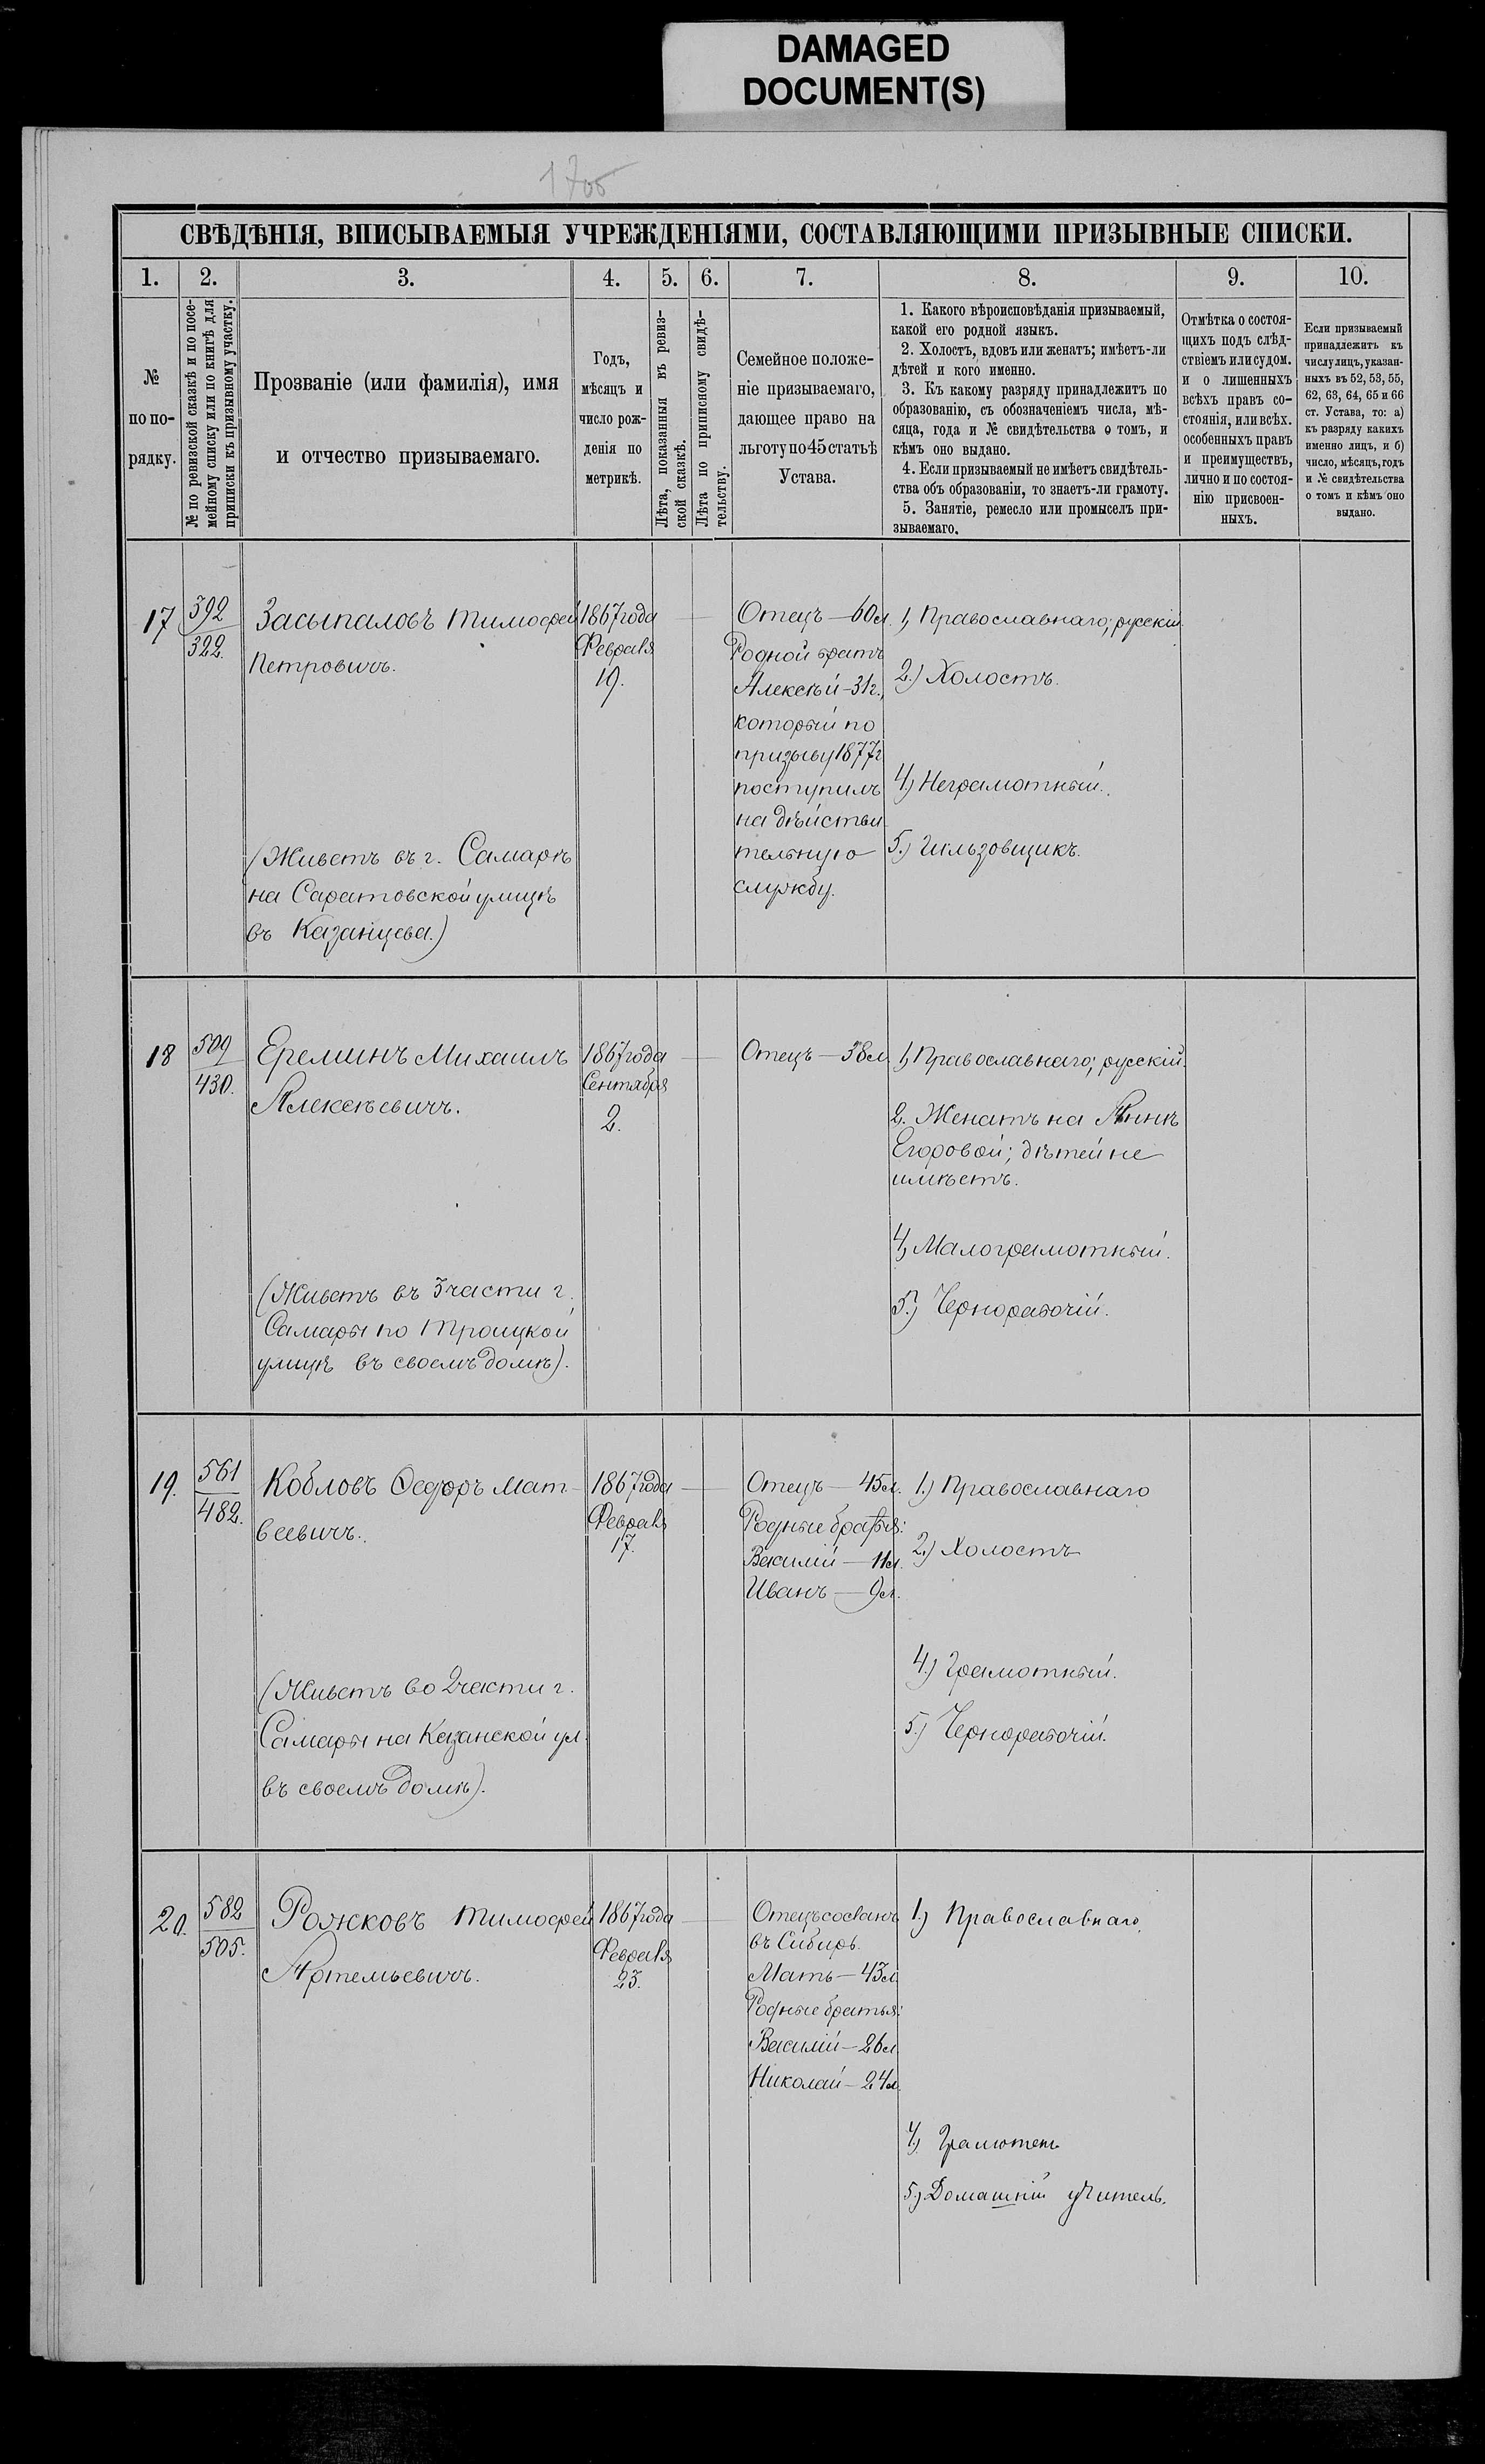 DAMAGED
DOCUMENT(S)
1705
СВѢДѢНІЯ, ВПИСЫВАЕМЫЯ УЧРЕЖДЕНІЯМИ, СОСТАВЛЯЮЩИМИ ПРИЗЫВНЫЕ СПИСКИ.
1. 2. 3. 4. 5. 6. 7. 8. 9. 10.
№
по по-
рядку.
№ по ревизской сказкѣ и по посе-
мейному списку или по книгѣ для
приписки къ призывному участку.
Прозваніе (или фамилія), имя
и отчество призываемаго.
Годъ,
мѣсяцъ и
число рож-
денія по
метрикѣ.
Лѣта, показанныя въ ревиз-
ской сказкѣ.
Лѣта по приписному свидѣ-
тельству.
Семейное положе-
ніе призываемаго,
дающее право на
льготу по 45 статьѣ
Устава.
1. Какого вѣроисповѣданія призываемый,
какой его родной языкъ.
2. Холостъ, вдовъ или женатъ; имѣетъ-ли
дѣтей и кого именно.
3. Къ какому разряду принадлежитъ по
образованію, съ обозначеніемъ числа, мѣ-
сяца, года и № свидѣтельства о томъ, и
кѣмъ оно выдано.
4. Если призываемый не имѣетъ свидѣтель-
ства объ образованіи, то знаетъ-ли грамоту.
5. Занятіе, ремесло или промыселъ при-
зываемаго.
Отмѣтка о состоя-
щихъ подъ слѣд-
ствіемъ или судом.
и о лишенныхъ
всѣхъ правъ со-
стоянія, или всѣх.
особенныхъ правъ
и преимуществъ,
лично и по состоя-
нію присвоен-
ныхъ.
Если призываемый
принадлежитъ къ
числу лицъ, указан-
ныхъ въ 52, 53, 55,
62, 63, 64, 65 и 66
ст. Устава, то: а)
къ разряду какихъ
именно лицъ, и б)
число, мѣсяцъ, годъ
и № свидѣтельства
о томъ и кѣмъ оно
выдано.
17
392
322.
Засыпаловъ Тимофей
Петровичъ.
(Живетъ въ г. Самарѣ
на Саратовской улицѣ
въ Казанцева.)
1867 года
Февраля
19.
Отецъ — 60 л.
Родной братъ
Алексѣй - 31 г.,
который по
призыву 1877 г
поступилъ
на дѣйстви
тельную
службу.
1, Православнаго; русскій.
2.) Холостъ.
4.) Неграмотный.
5.) Гильзовщикъ.
18
509
430.
Ереминъ Михаилъ
Алексѣевичъ.
(Живетъ въ 3 части г.
Самары по Троицкой
улицѣ въ своемъ домѣ).
1867 года
Сентября
2.
Отецъ — 38 л
1, Православнаго; русскій.
2. Женатъ на Аннѣ
Егоровой; дѣтей не
имѣетъ.
4, Малограмотный.
5.) Чернорабочій.
19.
561
482.
Кобловъ Ѳедоръ Мат-
веевичъ.
(Живетъ во 2 части г.
Самары на Казанской ул.
въ своемъ домѣ).
1867 года
Февраля
17.
Отецъ — 45 л.
Родные братья:
Василій — 11 л.
Иванъ — 9 л.
1.) Православнаго
2.) Холостъ
4.) Грамотный.
5.) Чернорабочій.
20.
582
505.
Рожковъ Тимофей
Артемьевичъ.
1867 года
Февраля
23.
Отецъ сосланъ
въ Сибирь.
Мать — 43 л
Родные братья:
Василій — 26 л
Николай — 24 л.
1.) Православнаго.
4.) Грамотенъ
5.) Домашній учитель.